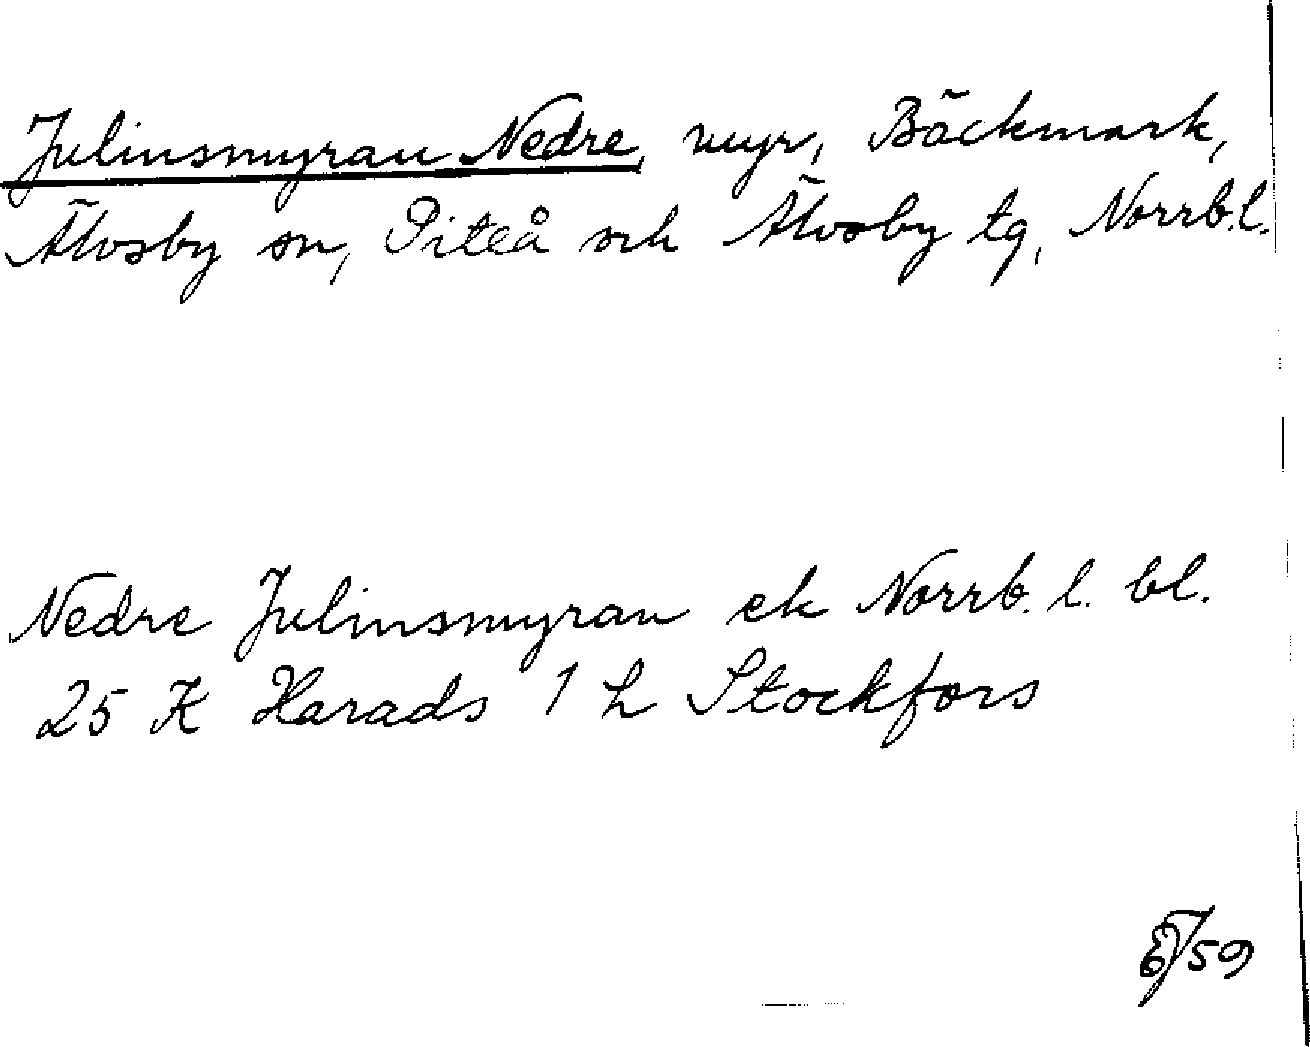 Julinsmyran Nedre, myr, Bäckmark,
Älvsby sn, Piteå och Älvsby tg, Norrb.l.
Nedre Julinsmyran ek Norrb. l. bl.
25 K Harads 1 h Stockfors
59